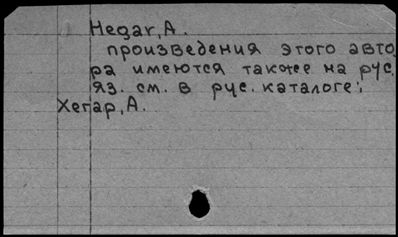 Hegar, A.
произведения этого авто
ра имеются также на рус.
яз. см. в рус. каталоге:
Хегар, А.